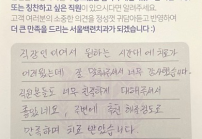 또는 칭찬하고 싶은 직원이 있으시다면 알려주세요.
고객 여러분의 소중한 의견을 귀담아듣고 반영하여
더 큰 만족을 드리는 서울백련치과가 되겠습니다 :)
직장인이어서 원하는 시간대에 치료가
어려웠는데 잘 맞춰주셔서 너무 감사했습니다.
직원분들도 너무 친절하게 대해주셔서
좋았네요,
만족하며 치료 받았습니다.